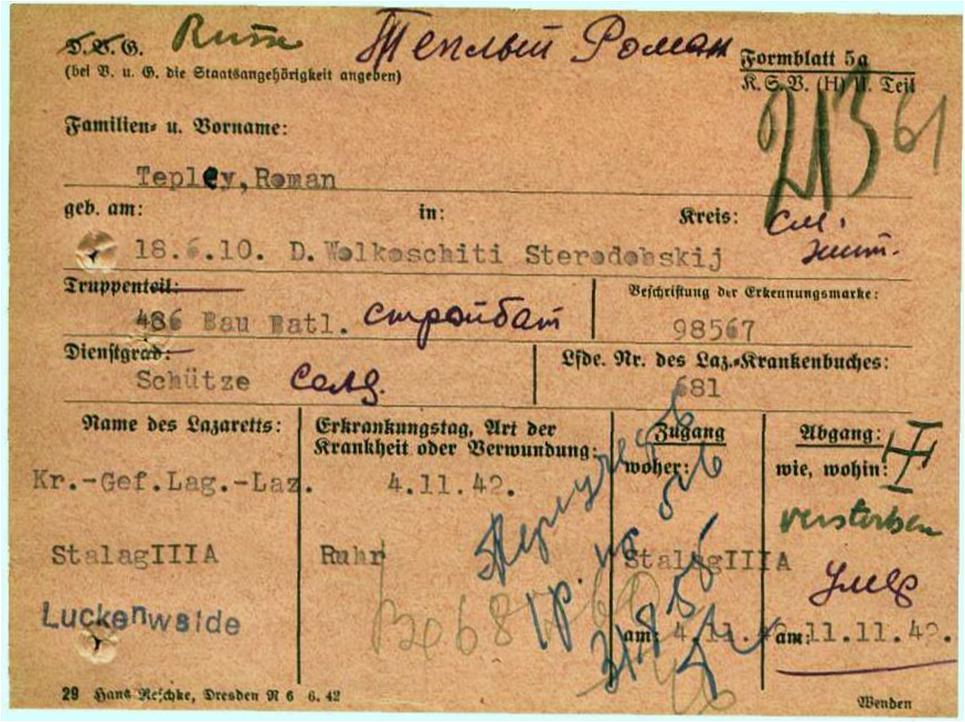 D. V. G. Russe Теплый Роман Formblatt 5a
(bei V. u. G. die Staatsangehörigkeit angeben) K.S.V. (H) II. Teil
213 61
Familien- u. Vorname:
Tepley, Roman
geb. am: in: Kreis: см.
18.6.10. D. Wolkoschiti Sterodobskij жит.
Truppenteil: Beschriftung der Erkennungsmarke:
486 Bau Batl. стройбат 98567
Dienstgrad: Lfde. Nr. des Laz.-Krankenbuches:
Schütze солд. 681
Name des Lazaretts: Erkrankungstag, Art der Zugang Abgang:
Krankheit oder Verwundung: woher: wie, wohin:
Kr.-Gef.Lag.-Laz. 4.11.42.
verstorben
StalagIIIA Ruhr StalagIIIA
умер
Luckenwalde
am: 4.11.42. am: 11.11.42.
29 Hans Reschke, Dresden N 6 6. 42 Wenden